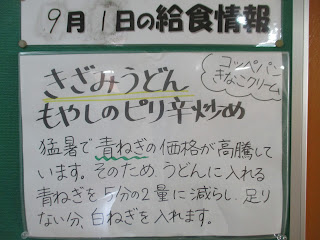 9月1日の給食情報
コッペパン
きなこクリーム
きざみうどん
もやしのピリ辛炒め
猛暑で青ねぎの価格が高騰して
います。そのため、うどんに入れる
青ねぎを5分の2量に減らし、足り
ない分、白ねぎを入れます。